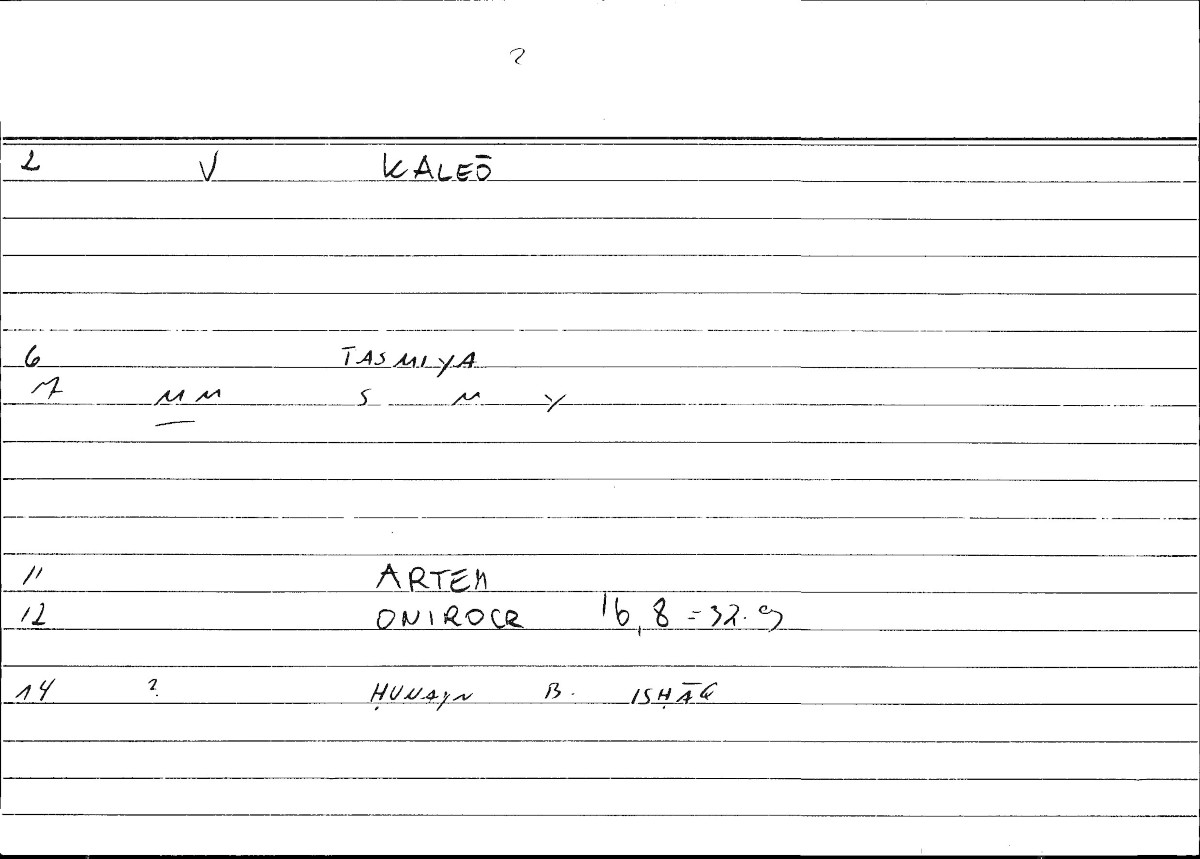 ?
2 V KALEŌ
6 TASMIYA
7 MM S M Y
11 ARTEM
12 ONIROCR 16,8 = 32.9
14 ? ḤUNAYN B. ISḤĀQ